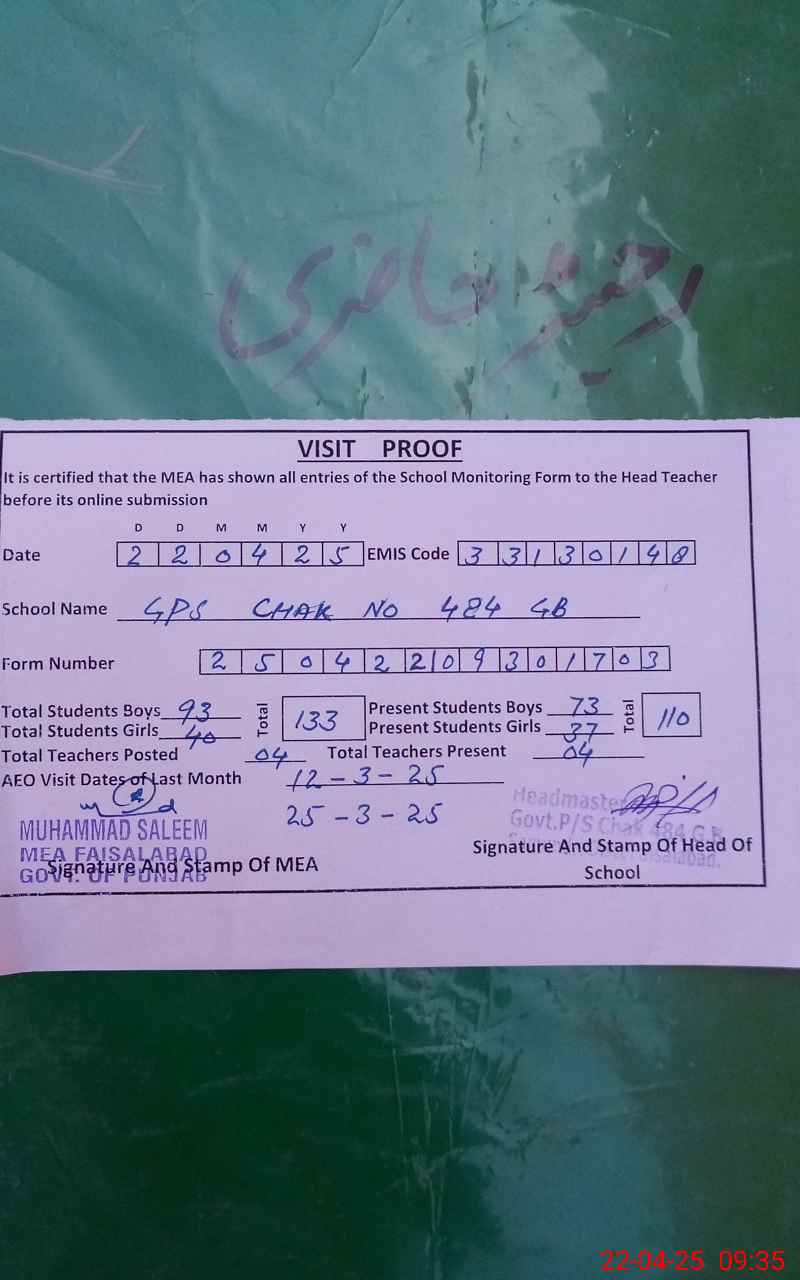 رجسٹر حاضری
VISIT PROOF
It is certified that the MEA has shown all entries of the School Monitoring Form to the Head Teacher
before its online submission
D D M M Y Y
Date 2 2 0 4 2 5 EMIS Code 3 3 1 3 0 1 4 8
School Name GPS CHAK NO 484 GB
Form Number 2 5 0 4 2 2 0 9 3 0 1 7 0 3
Total Students Boys 93 Total 133 Present Students Boys 73 Total 110
Total Students Girls 40 Present Students Girls 37
Total Teachers Posted 04 Total Teachers Present 04
AEO Visit Dates of Last Month 12-3-25
25-3-25
MUHAMMAD SALEEM
MEA FAISALABAD
GOVT. OF PUNJAB
Signature And Stamp Of MEA
Headmaster
Govt.P/S Chak 484 G.B
Signature And Stamp Of Head Of
School
22-04-25 09:35